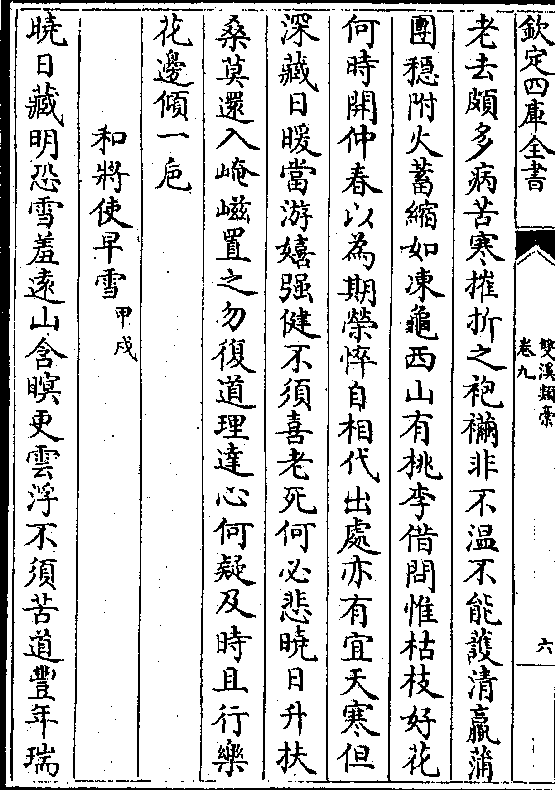 欽定四庫全書
雙溪類稾
卷九
六
老去頗多病苦寒摧折之袍襺非不温不能護清羸蒲
團穏附火蓄縮如凍龜西山有桃李借問惟枯枝好花
何時開仲春以為期榮悴自相代出處亦有宜天寒但
深藏日暖當游嬉强健不須喜老死何必悲曉日升扶
桑莫還入崦嵫置之勿復道理達心何疑及時且行樂
花邊傾一巵
和將使早雪甲戌
曉日藏明恐雪羞逺山含暝更雲浮不須苦道豐年瑞